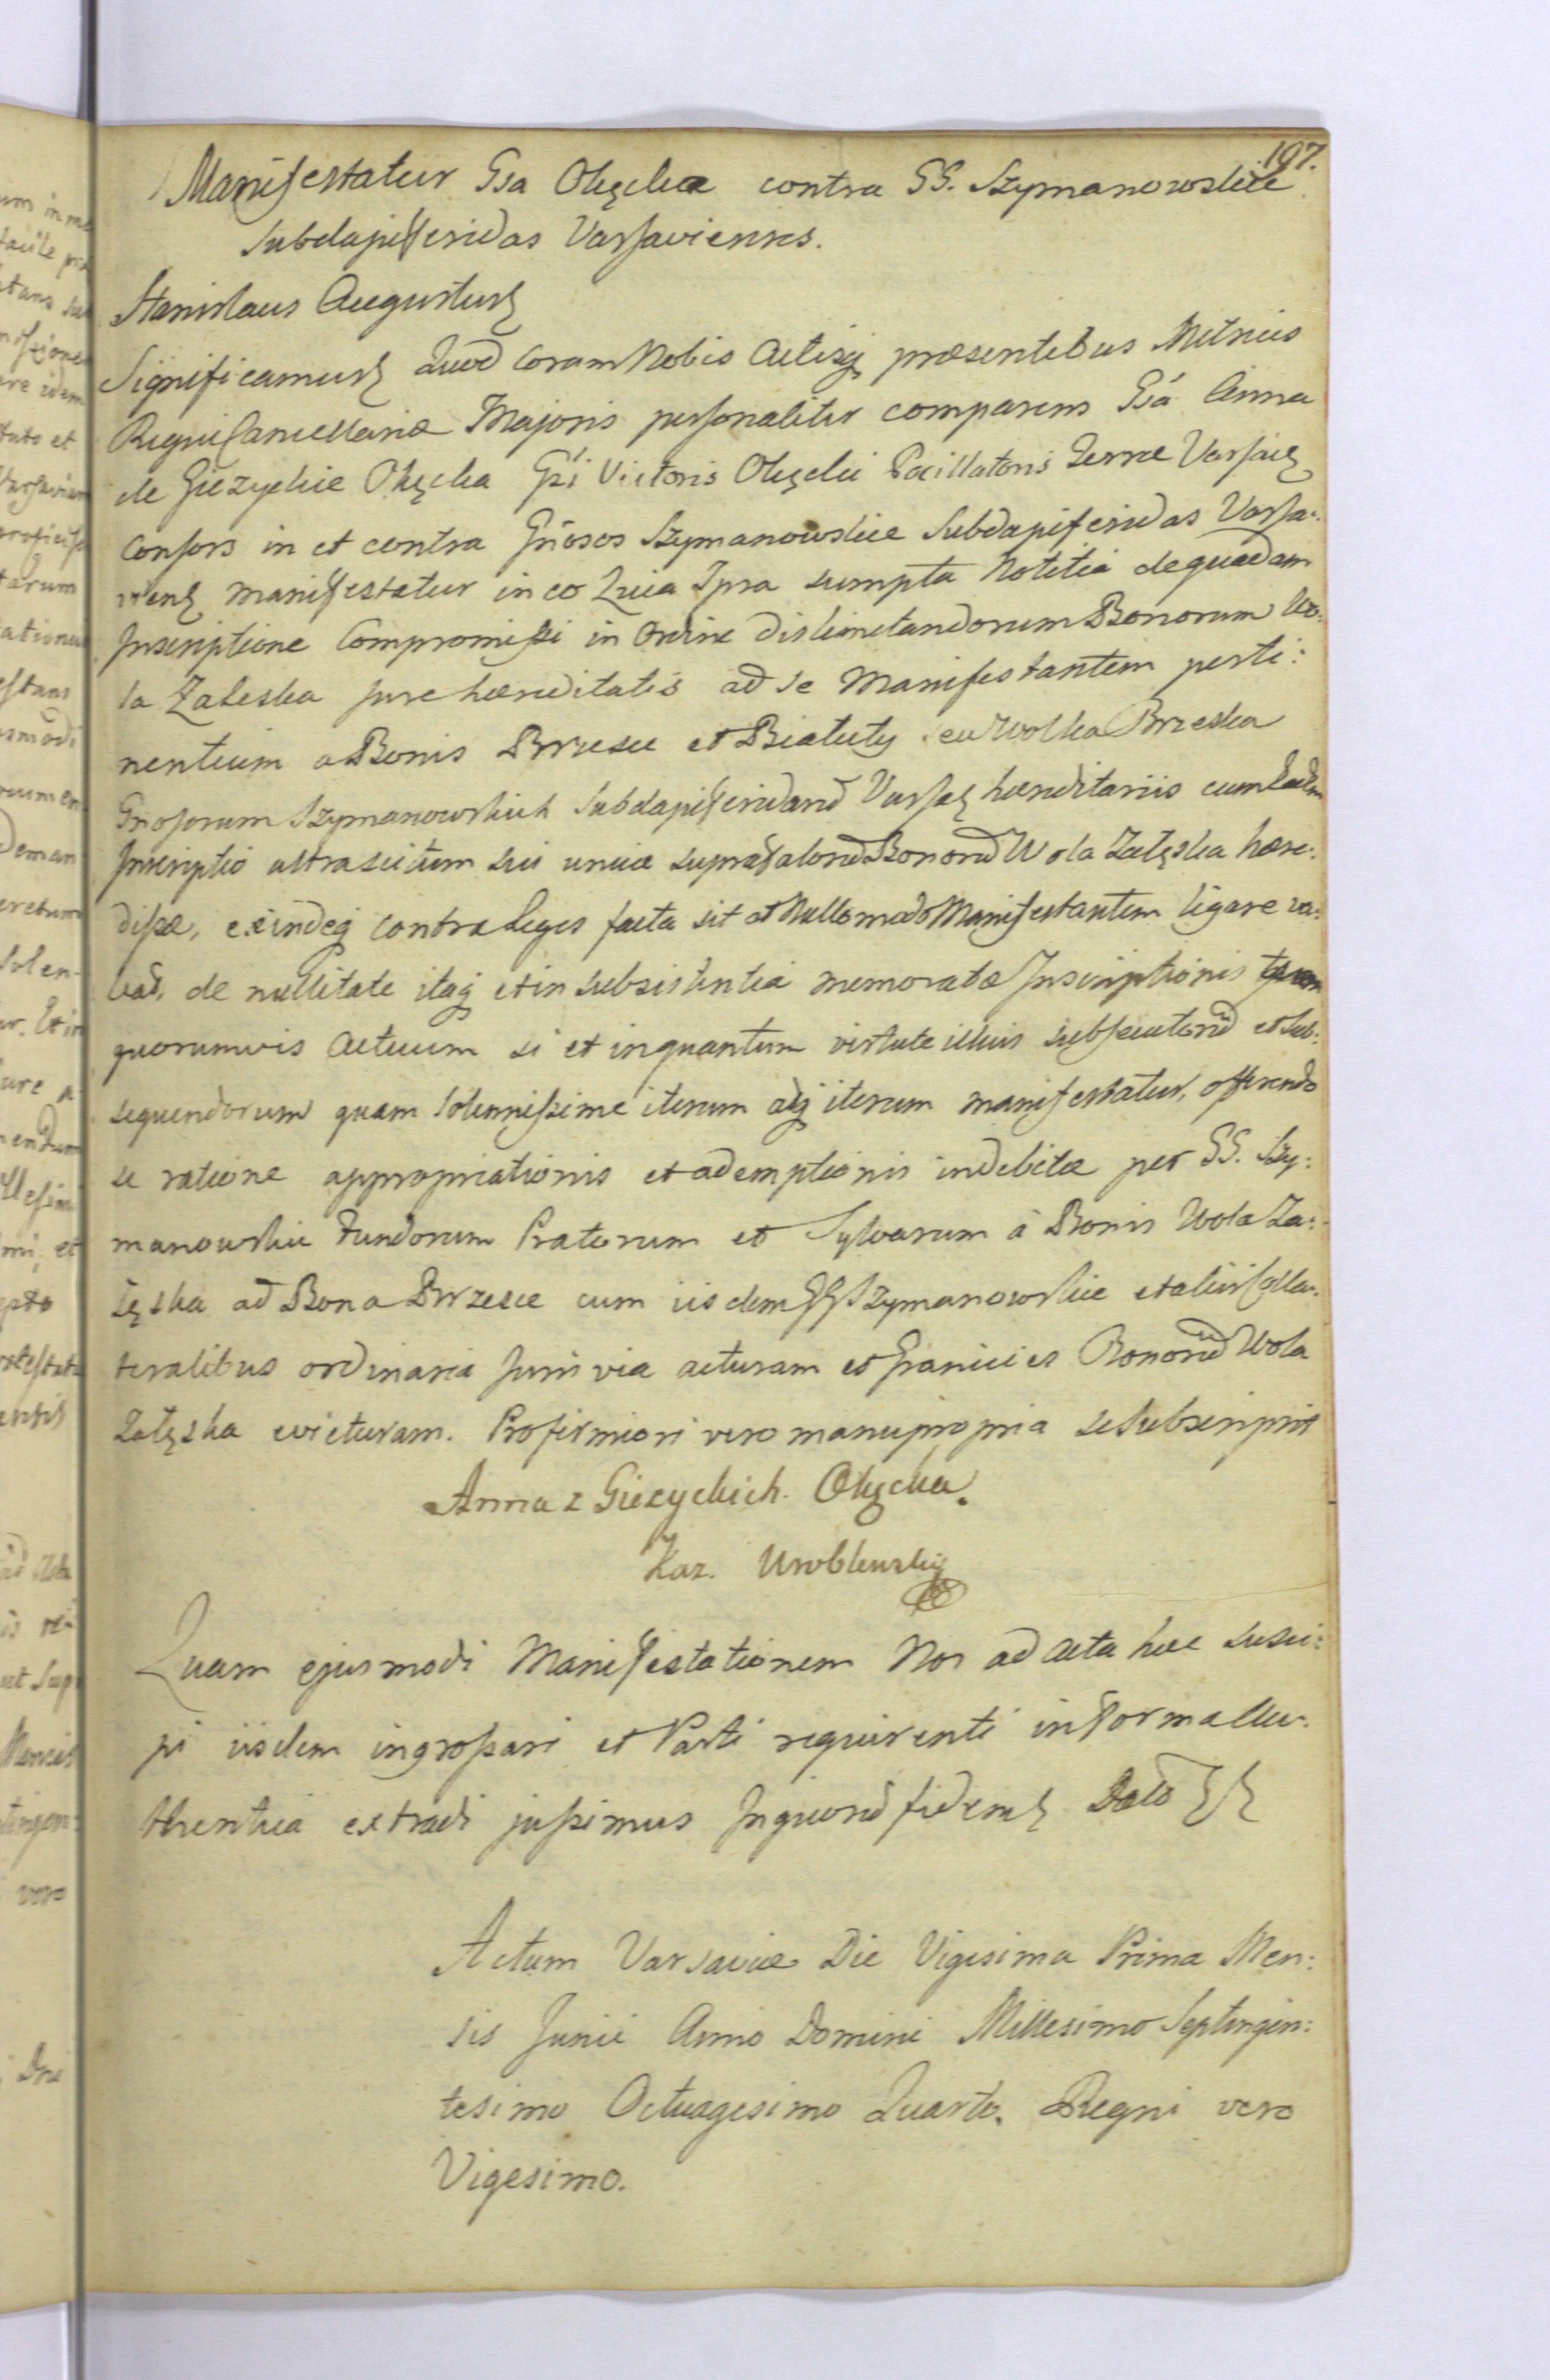 197.
Manifestatur Gsa Okęcka contra GG. Szymanowskie
Subdapiferidas Varsavienses.
Stanislaus Augustus
Significamus Quod Coram Nobis Actisq præsentibus Metrices
Regni Cancellariæ Majoris personaliter comparens Gsa Anna
de Giezyckie Okęcka Gsi Victoris Okęcki Pocillatoris Terræ Varsaię
Consors in et contra Gnosos Szymanowskie Subdapiferidas Varsa:
viens manifestatur in eo Quia Ipsa sumpta Notitia de quadam
Inscriptione Compromissi in Ordine dislimitandorum Bonorum Wo:
la Zaleska Jure hæreditatis ad se Manifestantem perti:
nentium a Bonis Brzesce et Biatuty seu Wolka Brzeska
Gnosorum Szymanowskich Subdapiferidarũ Varsaę hæreditariis cum Eadem
Inscriptio ultra scitum sui unicæ supradatorũ Bonorũ Wola Załęska hære:
dissæ, exindeq contra Leges facta sit et Nullo modo Manifestantem ligare va:
leat, de nullitate itaq et in subsistentia memoratæ Inscriptionis
quorumvis Actuum si et inquantum virtute illius subsecutorũ et sub:
sequendorum quam solennissime iterum atq iterum manifestatur, offerendo
se ratione appropriationis et ademptionis indebitæ per GG. Szy:
manowskie Fundorum Pratorum et Sylvarum à Bonis Wola Za:
łęska ad Bona Brzesce cum iisdem GG Szymanowskie et aliis Colla:
teralibus ordinaria Juris via acturam et Granicies Bonorũ Wola
Załęska evicturam. Pro firmiori vero manu propria se subscripsit
Anna z Giezyckich Okęcka.
Kaz. Wroblewski
Quam ejusmodi Manifestationem Nos ad Acta hæc susce:
pi iisdem ingrossari et Parti requirenti in forma Au:
thentica extradi jussimus In quorũ fidem Dato
Actum Varsaviæ Die Vigesima Prima Men:
sis Junii Anno Domini Millesimo Septingen:
tesimo Octuagesimo Quarto. Regni vero
Vigesimo.